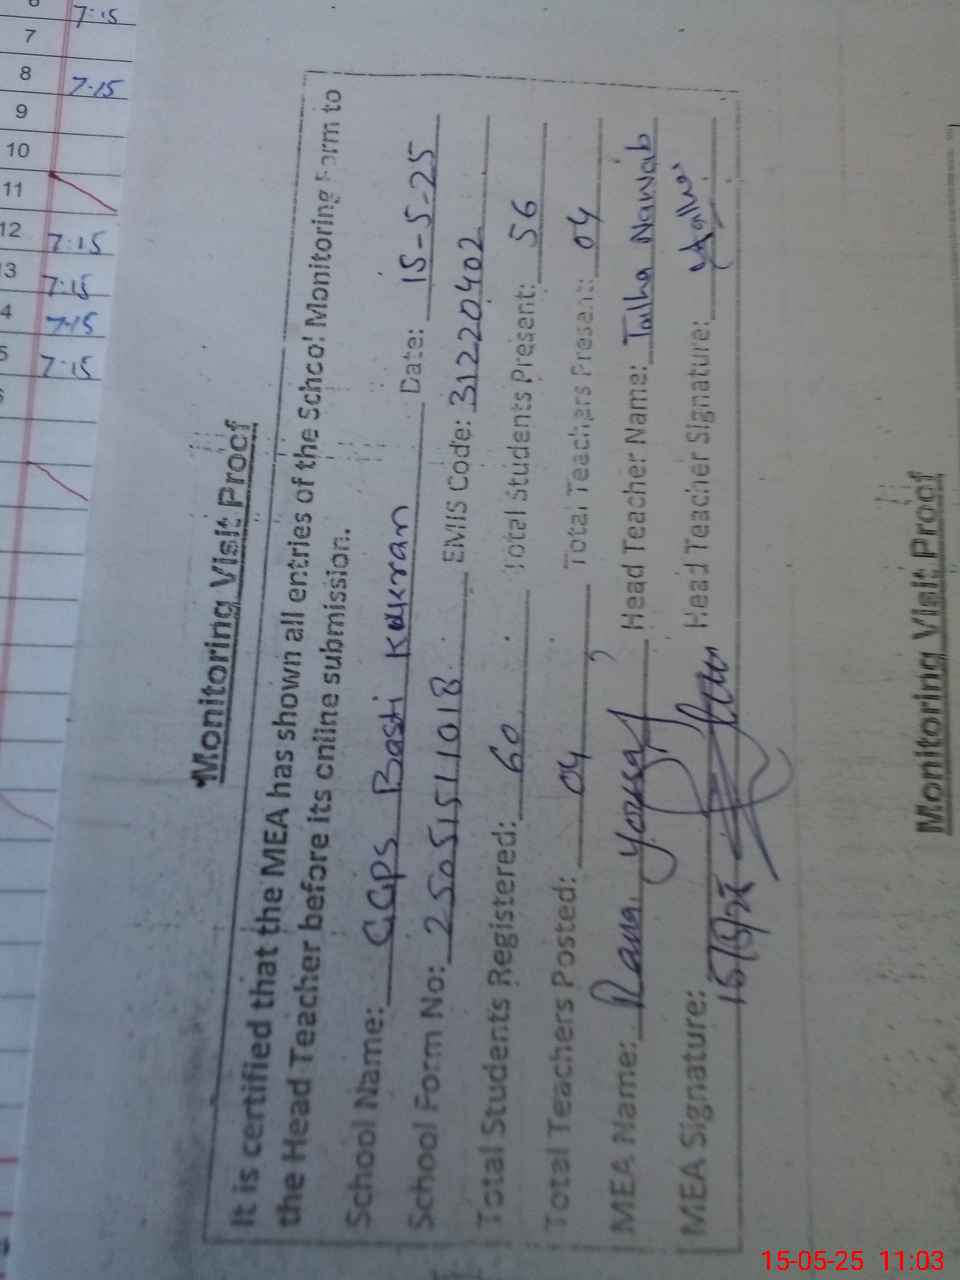 Monitoring Visit Proof
It is certified that the MEA has shown all entries of the School Monitoring Form to
the Head Teacher before its online submission.
School Name: GGPS Basti Kakran Date: 15-5-25
School Form No: 2505151101B EMIS Code: 31220402
Total Students Registered: 60 Total Students Present: 56
Total Teachers Posted: 04 Total Teachers Present: 04
MEA Name: Rana Yousaf Head Teacher Name: Talha Nawab
MEA Signature: Head Teacher Signature:
15/5/25
Monitoring Visit Proof
7:15
7
8 7:15
9
10
11
12 7:15
3 7:15
4 7:15
5 7:15
15-05-25 11:03